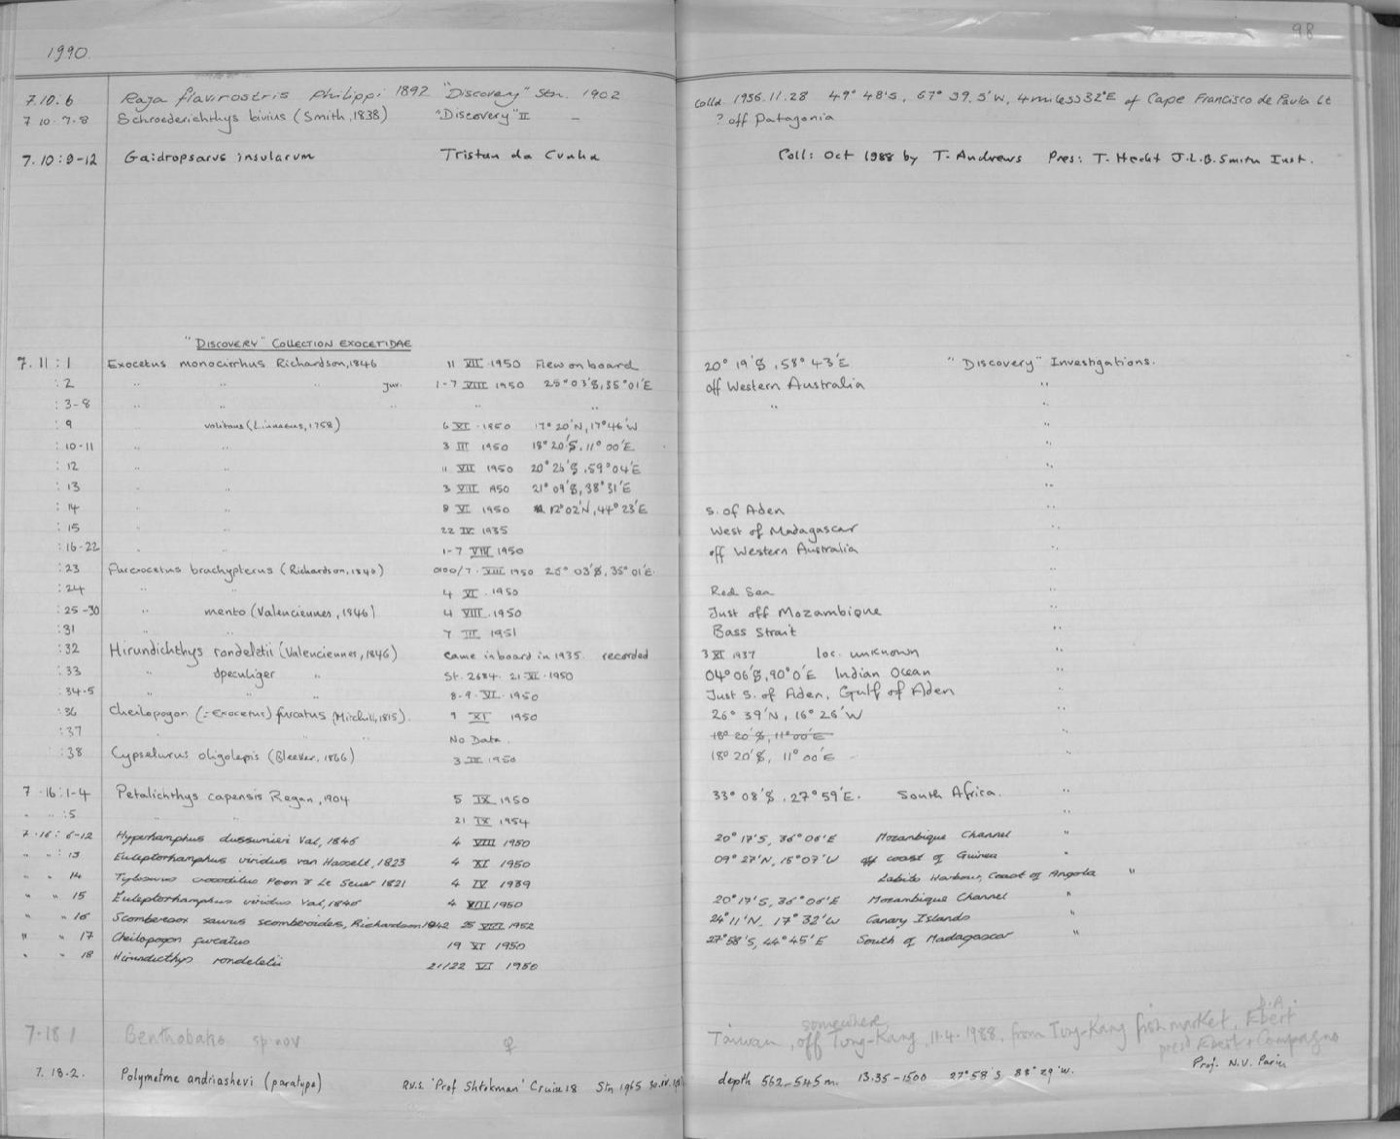 98
1990.
7.10.6 Raja flavirostris Philippi 1892 "Discovery" Stn. 1902 Colld. 1936.11.28 49° 48'S, 67° 39.5'W, 4 miles S 32°E of Cape Francisco de Paula Lt
7 10 7-8 Schroederichthys bivius (Smith, 1838) "Discovery" II – ? off Patagonia
7.10:9-12 Gaidropsarus insularum Tristan da Cunha Coll: Oct 1988 by T. Andrews Pres: T. Hecht J.L.B. Smith Inst.
"DISCOVERY" COLLECTION EXOCETIDAE
7.11:1 Exocetus monocirrhus Richardson, 1846 11 VII 1950 Flew on board 20° 19'S, 58° 43'E "Discovery" Investigations.
:2 " " " jur. 1-7 VIII 1950 25° 03'S, 35° 01'E off Western Australia "
:3-8 " " " " " " "
:9 volitans (Linnaeus, 1758) 6 XI 1950 17° 20'N, 17° 46'W "
:10-11 " " 3 III 1950 18° 20'S, 11° 00'E "
:12 " " 11 VII 1950 20° 26'S, 59° 04'E "
:13 " " 3 VIII 1950 21° 09'S, 38° 31'E "
:14 " " 8 VI 1950 12° 02'N, 44° 23'E S. of Aden "
:15 " " 22 IX 1935 West of Madagascar "
:16-22 " " 1-7 VIII 1950 off Western Australia "
:23 Parexocetus brachypterus (Richardson, 1846) 0100/7. VIII 1950 25° 03'S, 35° 01'E "
:24 " " 4 VI 1950 Red Sea "
:25-30 " mento (Valenciennes, 1846) 4 VIII 1950 Just off Mozambique "
:31 " " 7 III 1951 Bass Strait "
:32 Hirundichthys rondeletii (Valenciennes, 1846) Came inboard in 1935 recorded 3 XI 1937 loc. unknown "
:33 " speculiger " St. 2684. 21. XI. 1950 04° 06'S, 90° 0'E Indian Ocean "
:34-5 " " " 8-9. VI. 1950 Just S. of Aden, Gulf of Aden "
:36 Cheilopogon (=Exocetus) furcatus (Mitchill, 1815). 9 XI 1950 26° 39'N, 16° 26'W "
:37 " " No Data. 18° 20'S, 11° 00'E "
:38 Cypselurus oligolepis (Bleeker, 1866) 3 III 1950 18° 20'S, 11° 00'E "
7.16:1-4 Petalichthys capensis Regan, 1904 5 IX 1950 33° 08'S, 27° 59'E. South Africa. "
" " :5 21 IX 1954 "
7.16:6-12 Hyporhamphus dussumieri Val, 1846 4 VIII 1950 20° 17'S, 36° 06'E Mozambique Channel "
" " :13 Euleptorhamphus viridus van Hasselt, 1823 4 XI 1950 09° 27'N, 15° 07'W off coast of Guinea "
" " 14 Tylosurus crocodilus Peron & Le Seuer 1821 4 IV 1939 Lobito Harbour, Coast of Angola "
" " 15 Euleptorhamphus viridus Val, 1846 4 VIII 1950 20° 17'S, 36° 06'E Mozambique Channel "
" " 16 Scomberesox saurus scomberoides, Richardson 1842 25 VIII 1952 24° 11'N, 17° 32'W Canary Islands "
" " 17 Cheilopogon furcatus 19 XI 1950 27° 58'S, 44° 45'E South of Madagascar "
" " 18 Hirundicthys rondeletii 21/22 VI 1950
7.18 1 Benthobatis sp nov ♀ Taiwan, somewhere off Tung-Kang, 11.4.1988, from Tung-Kang fish market, D.A. Ebert
pres'd Ebert & Compagno
7.18.2. Polymetme andriashevi (paratype) R.V.S. 'Prof Shtokman' Cruise 18 Stn 1965 depth 562-545 m. 13.35-1500 27° 58'S 83° 29'W. Prof. N.V. Parin